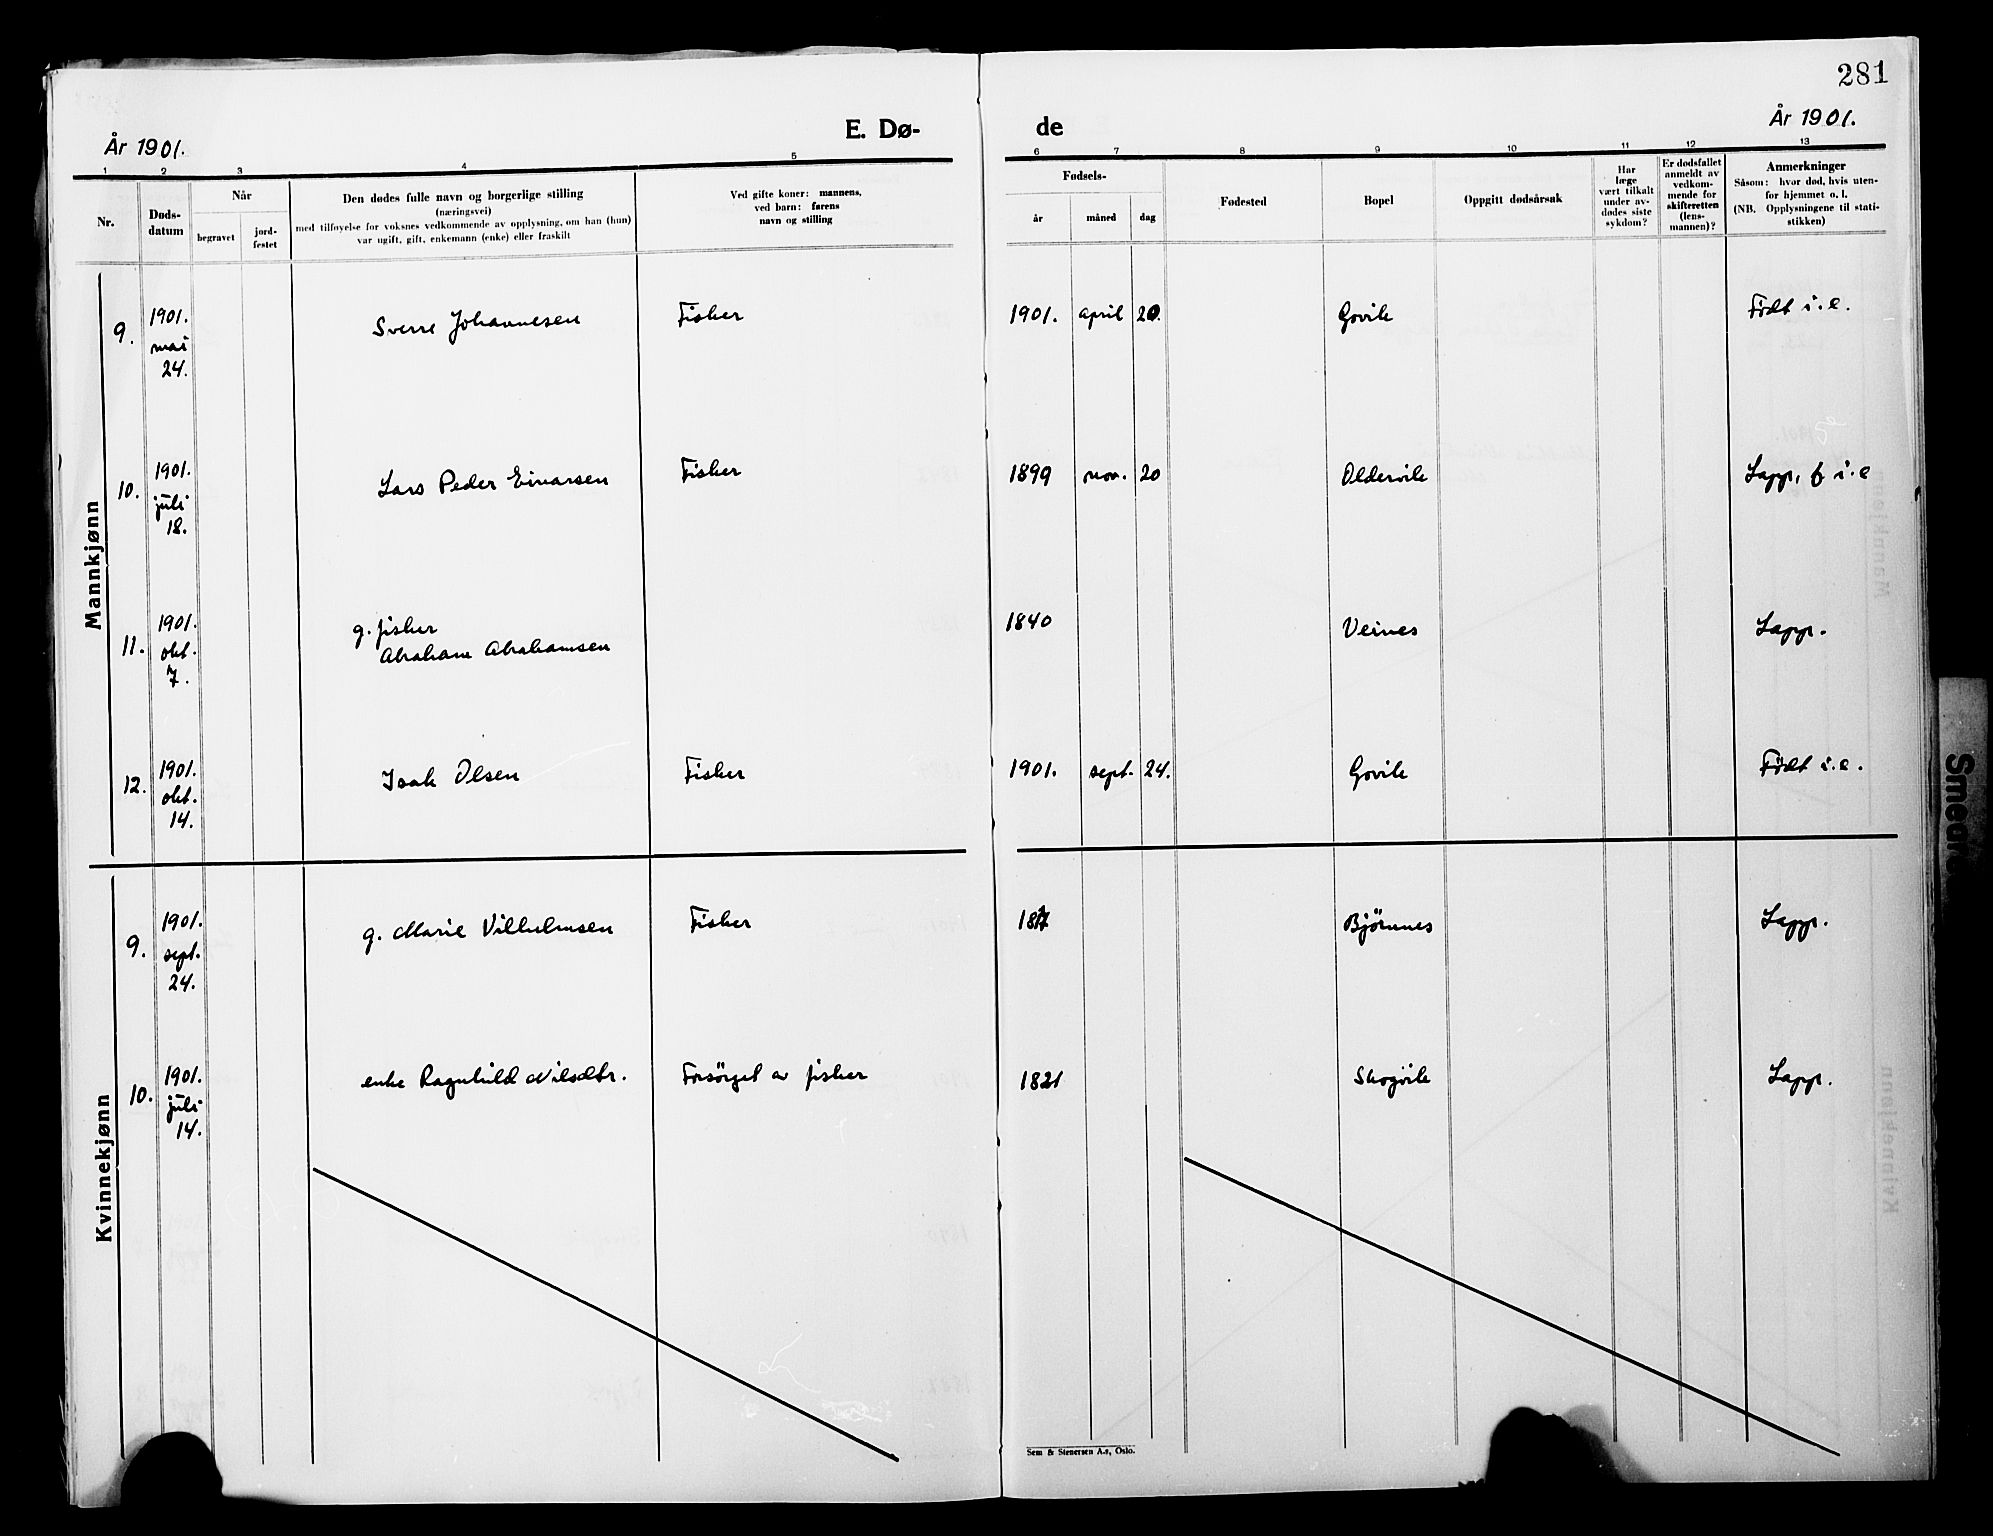 281
År 1901.
E. Dø-
de
År 1901.
1 2 3 4 5 6 7 8 9 10 11 12 13
Nr.
Døds-
datum
Når
begravet
jord-
festet
Den dødes fulle navn og borgerlige stilling
(næringsvei)
med tilføyelse for voksnes vedkommende av opplysning, om han (hun)
var ugift, gift, enkemann (enke) eller fraskilt
Ved gifte koner: mannens,
ved barn: farens
navn og stilling
Fødsels-
år
måned
dag
Fødested
Bopel
Oppgitt dødsårsak
Har
læge
vært tilkalt
under av-
dødes siste
sykdom?
Er dødsfallet
anmeldt av
vedkom-
mende for
skifteretten
(lens-
mannen)?
Anmerkninger
Såsom: hvor død, hvis uten-
for hjemmet o. l.
(NB. Opplysningene til stati-
stikken)
Mannkjønn
9. 1901. mai 24. Sverre Johannesen Fisker 1901. april 20. Govik Født i.e.
10. 1901. juli 18. Lars Peder Einarsen Fisker 1899 nov. 20 Oldervik Lapp, f i.e
11. 1901. okt. 7. g. fisker
Abraham Abrahamsen 1840 Veines Lapp.
12. 1901. okt. 14. Isak Olsen Fisker 1901. sept. 24. Govik Født i.e.
Kvinnekjønn
9. 1901. sept. 24. g. Marie Vilhelmsen Fisker Bjørnnes Lapp.
10. 1901. juli 14. enke Ragnhild Nilsdtr. Forsörget av fisker 1821 Skogvik Lapp.
Sem & Stenersen A.s, Oslo.